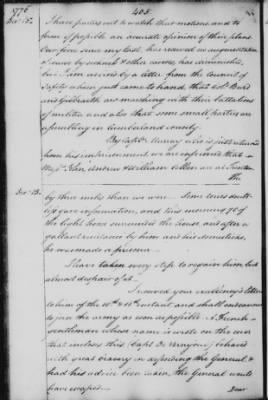 1776
405.
Decr 12.
I have parties out to watch their motions and to
form if possible an accurate opinion of their plans
Our force since my last, has received no augmentation
of course by sickness & other causes, has diminished,
but I am advised by a letter from the Council of
Safety which just came to hand, that Cols. Burd
and Galbreath are marching with their battalions
of militia and also that some small parties are
assembling in Cumberland county.
By Capt. Murray who is just returned
from his imprisonment, we are informed that
Messrs. John, Andrew & William Allen are at Trenton
Decr 13.
by three miles than we were. Some
gave information, and this morning 70 of
the light horse surrounded the house and after a
gallant resistance by him and his domesticks,
he was made a prisoner.
I have taken every step to regain him but
almost despair of it.
I received your excellency's letters
to him of the 10th & 11th instant and shall endeavour
to join the army as soon as possible. A French
gentleman whose name is wrote on the cover
that incloses this (Capt. De Vernejou) behaved
with great bravery in defending the General &
had his advice been taken, the General would
have escaped.